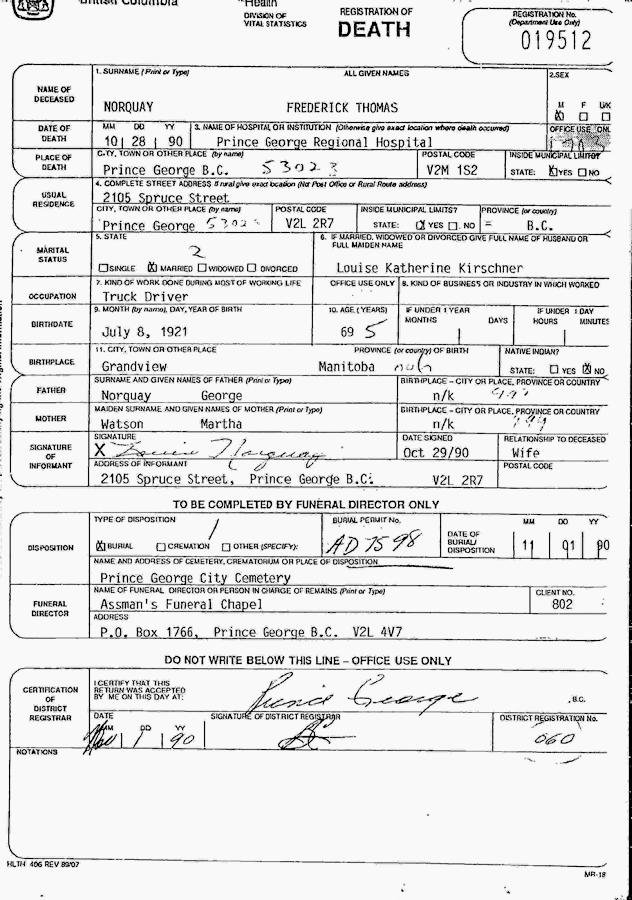 British Columbia
Health
DIVISION OF
VITAL STATISTICS
REGISTRATION OF
DEATH
REGISTRATION No.
(Department Use Only)
019512
NAME OF DECEASED
1. SURNAME (Print or Type) ALL GIVEN NAMES 2.SEX
NORQUAY FREDERICK THOMAS M F U/K
X
DATE OF DEATH
MM DD YY 3. NAME OF HOSPITAL OR INSTITUTION (Otherwise give exact location where death occurred) OFFICE USE ONL
10 28 90 Prince George Regional Hospital
PLACE OF DEATH
CITY, TOWN OR OTHER PLACE (by name) POSTAL CODE INSIDE MUNICIPAL LIMITS?
Prince George B.C. 53023 V2M 1S2 STATE: X YES NO
USUAL RESIDENCE
4. COMPLETE STREET ADDRESS If rural give exact location (Not Post Office or Rural Route address)
2105 Spruce Street
CITY, TOWN OR OTHER PLACE (by name) POSTAL CODE INSIDE MUNICIPAL LIMITS? PROVINCE (or country)
Prince George 53023 V2L 2R7 STATE: X YES NO = B.C.
MARITAL STATUS
5. STATE 6. IF MARRIED, WIDOWED OR DIVORCED GIVE FULL NAME OF HUSBAND OR
FULL MAIDEN NAME
2
SINGLE X MARRIED WIDOWED DIVORCED Louise Katherine Kirschner
OCCUPATION
7. KIND OF WORK DONE DURING MOST OF WORKING LIFE OFFICE USE ONLY 8. KIND OF BUSINESS OR INDUSTRY IN WHICH WORKED
Truck Driver
BIRTHDATE
9. MONTH (by name), DAY, YEAR OF BIRTH 10. AGE (YEARS) IF UNDER 1 YEAR IF UNDER 1 DAY
MONTHS DAYS HOURS MINUTES
July 8, 1921 69 5
BIRTHPLACE
11. CITY, TOWN OR OTHER PLACE PROVINCE (or country) OF BIRTH NATIVE INDIAN?
Grandview Manitoba STATE: YES X NO
FATHER
SURNAME AND GIVEN NAMES OF FATHER (Print or Type) BIRTHPLACE - CITY OR PLACE, PROVINCE OR COUNTRY
Norquay George n/k
MOTHER
MAIDEN SURNAME AND GIVEN NAMES OF MOTHER (Print or Type) BIRTHPLACE - CITY OR PLACE, PROVINCE OR COUNTRY
Watson Martha n/k
SIGNATURE OF INFORMANT
SIGNATURE DATE SIGNED RELATIONSHIP TO DECEASED
X Louise Norquay Oct 29/90 Wife
ADDRESS OF INFORMANT POSTAL CODE
2105 Spruce Street, Prince George B.C. V2L 2R7
TO BE COMPLETED BY FUNERAL DIRECTOR ONLY
DISPOSITION
TYPE OF DISPOSITION BURIAL PERMIT No. DATE OF BURIAL/DISPOSITION MM DD YY
X BURIAL CREMATION OTHER (SPECIFY): AD7598 11 01 90
NAME AND ADDRESS OF CEMETERY, CREMATORIUM OR PLACE OF DISPOSITION
Prince George City Cemetery
FUNERAL DIRECTOR
NAME OF FUNERAL DIRECTOR OR PERSON IN CHARGE OF REMAINS (Print or Type) CLIENT NO.
Assman's Funeral Chapel 802
ADDRESS
P.O. Box 1766, Prince George B.C. V2L 4V7
DO NOT WRITE BELOW THIS LINE - OFFICE USE ONLY
CERTIFICATION OF DISTRICT REGISTRAR
I CERTIFY THAT THIS
RETURN WAS ACCEPTED
BY ME ON THIS DAY AT: Prince George , B.C.
DATE SIGNATURE OF DISTRICT REGISTRAR DISTRICT REGISTRATION No.
MM DD YY
Nov 1 90 060
NOTATIONS
HLTH 406 REV 89/07
MR-18